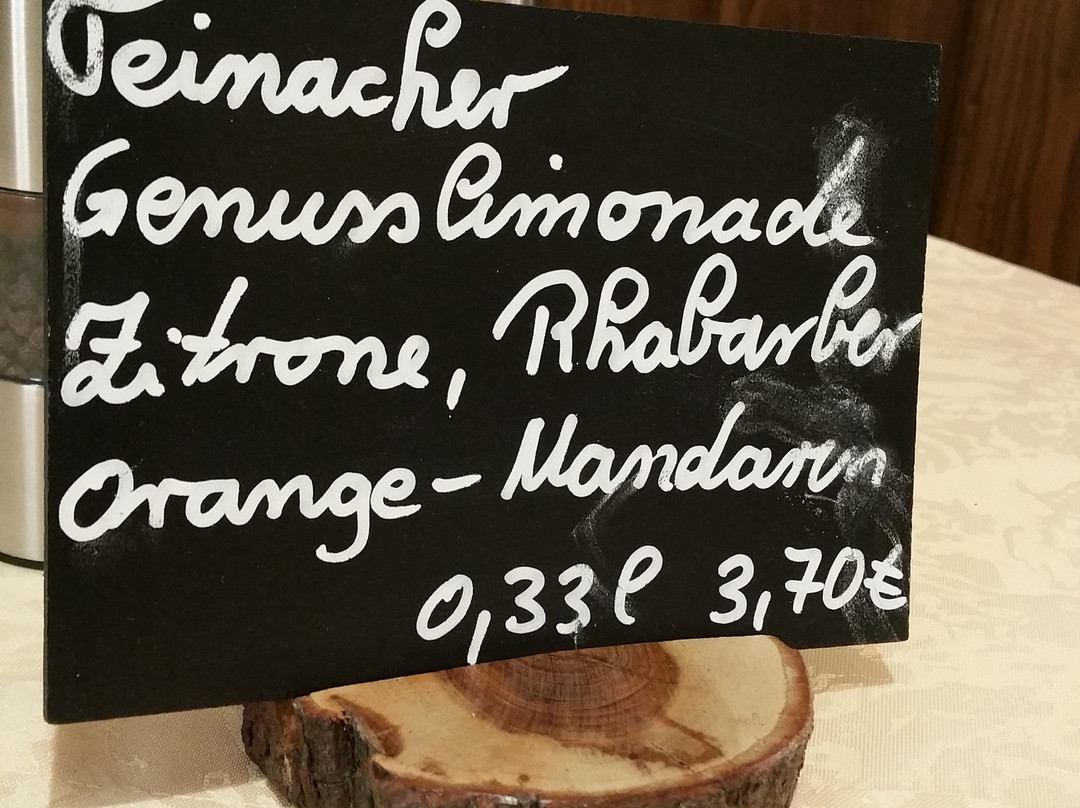 Teinacher
Genusslimonade
Zitrone, Rhabarber
Orange-Mandarin
0,33l 3,70€